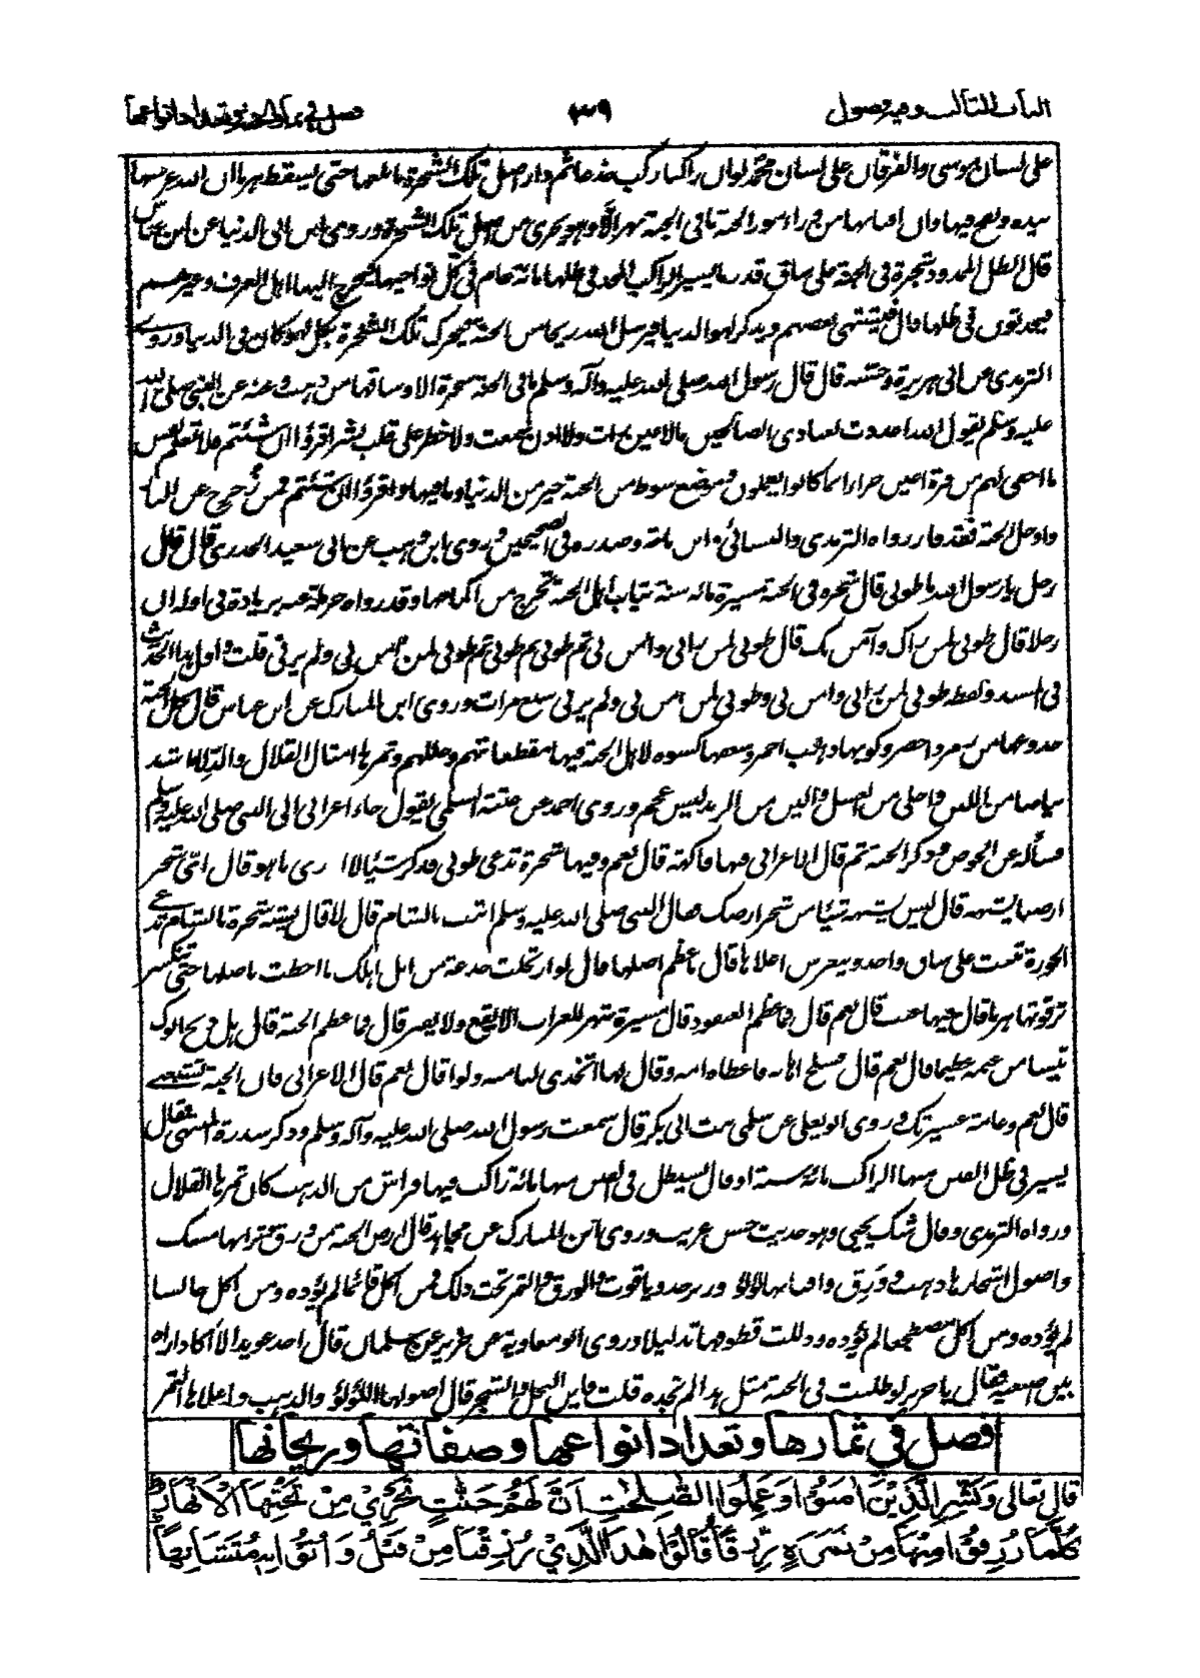 الباب الثالث وفيه فصول ٣٩ فصل في ثمارها وتعداد انواعها
على لسان موسى والفرقان على لسان محمد لو ان راكبا ركب جذعا ثم دار باصل تلك الشجرة ما بلغها حتى يسقط هرما ان الله غرسها
بيده ونفخ فيها وان افنانها من وراء سور الجنة ما في الجنة نهر الا وهو يجرى من اصل تلك الشجرة وروى ابن ابى الدنيا عن ابن عباس
قال الظل الممدود شجرة فى الجنة على ساق قدر ما يسير الراكب المجد فى ظلها مائة عام فى كل نواحيها يخرج اليها اهل الغرف وغيرهم
فيحدثون فى ظلها قال فيشتهى بعضهم ويذكر لهو الدنيا فيرسل الله ريحا من الجنة فيحرك تلك الشجرة بكل لهو كان فى الدنيا وروى
الترمذى عن ابى هريرة قال قال رسول الله صلى الله عليه وآله وسلم ما فى الجنة شجرة الا وساقها من ذهب وعنه عن النبى صلى الله
عليه وسلم يقول الله اعددت لعبادى الصالحين ما لا عين رات ولا اذن سمعت ولا خطر على قلب بشر اقرؤا ان شئتم فلا تعلم نفس
ما اخفى لهم من قرة اعين جزاء بما كانوا يعملون وموضع سوط من الجنة خير من الدنيا وما فيها واقرؤا ان شئتم فمن زحزح عن النار
وادخل الجنة فقد فاز رواه الترمذى والنسائى وابن ماجة وصدره فى الصحيحين وروى ابن وهب عن ابى سعيد الخدرى قال قال
رجل يا رسول الله ما طوبى قال شجرة فى الجنة مسيرة مائة سنة ثياب اهل الجنة تخرج من اكمامها وقد رواه حرملة عنه بزيادة فى اوله ان
رجلا قال طوبى لمن رآك وآمن بك قال طوبى لمن رآنى وآمن بى ثم طوبى ثم طوبى ثم طوبى لمن آمن بى ولم يرنى قلت واول هذا الحديث
فى المسند ولفظه طوبى لمن رآنى وآمن بى وطوبى لمن آمن بى ولم يرنى سبع مرات وروى ابن المبارك عن ابن عباس قال نخل الجنة
جذوعها من زمرد اخضر وكربها ذهب احمر وسعفها كسوة لاهل الجنة فيها مقطعاتهم وحللهم وثمرها امثال القلال والدلاء اشد
بياضا من اللبن واحلى من العسل والين من الزبد ليس عجم وروى احمد عن عتبة السلمى يقول جاء اعرابى الى النبى صلى الله عليه وسلم
فسأله عن الحوض وذكر الجنة ثم قال الاعرابى فيها فاكهة قال نعم وفيها شجرة تدعى طوبى فذكر شيئا لا ادرى ما هو قال اى شجر
ارضنا يشبهه قال ليس يشبه شيئا من شجر ارضك فقال النبى صلى الله عليه وسلم اتيت الشام قال لا قال يشبه شجرة بالشام تدعى
الجوزة تنبت على ساق واحد ويفرش اعلاها قال ما عظم اصلها قال لو ارتحلت جذعة من ابل اهلك ما احطت باصلها حتى تنكسر
ترقوتها هرما قال فيها عنب قال نعم قال فما عظم العنقود قال مسيرة شهر للغراب الابقع ولا يفتر قال فما عظم الحبة قال هل ذبح ابوك
تيسا من غنمه عظيما قال نعم قال فسلخ اهابه فاعطاه امك وقال لها اتخذى لنا منه دلوا قال نعم قال الاعرابى فان الحبة لتشبعنى
قال نعم وعامة عشيرتك وروى ابو يعلى عن اسلمى بنت ابى بكر قال سمعت رسول الله صلى الله عليه وآله وسلم وذكر سدرة المنتهى فقال
يسير فى ظل الفنن منها الراكب مائة سنة او قال يستظل فى الفنن منها مائة راكب فيها فراش من الذهب كان ثمرها القلال
ورواه الترمذى وقال شك يحيى وهو حديث حسن غريب وروى ابن المبارك عن مجاهد قال ارض الجنة من ورق وترابها مسك
واصول اشجارها ذهب وورق وافنانها لؤلؤ وزبرجد وياقوت والورق والثمر تحت ذلك فمن اكل قائما لم يؤذه ومن اكل جالسا
لم يؤذه ومن اكل مضطجعا لم يؤذه وذللت قطوفها تذليلا وروى ابو معاوية عن جرير عن سلمان قال اخذ عويدا لا اكاد اراه
بين اصبعيه فقال يا جرير لو طلبت فى الجنة مثل هذا لم تجده قلت فاين النخل والشجر قال اصولها اللؤلؤ والذهب واعلاها الثمر
فصل في ثمارها وتعداد انواعها وصفاتها وريحانها
قال تعالى وَبَشِّرِ الَّذِيْنَ اٰمَنُوْا وَعَمِلُوا الصّٰلِحٰتِ اَنَّ لَهُمْ جَنّٰتٍ تَجْرِيْ مِنْ تَحْتِهَا الْاَنْهَارُ
كُلَّمَا رُزِقُوْا مِنْهَا مِنْ ثَمَرَةٍ رِّزْقًا قَالُوْا هٰذَا الَّذِيْ رُزِقْنَا مِنْ قَبْلُ وَاُتُوْا بِهٖ مُتَشَابِهًا